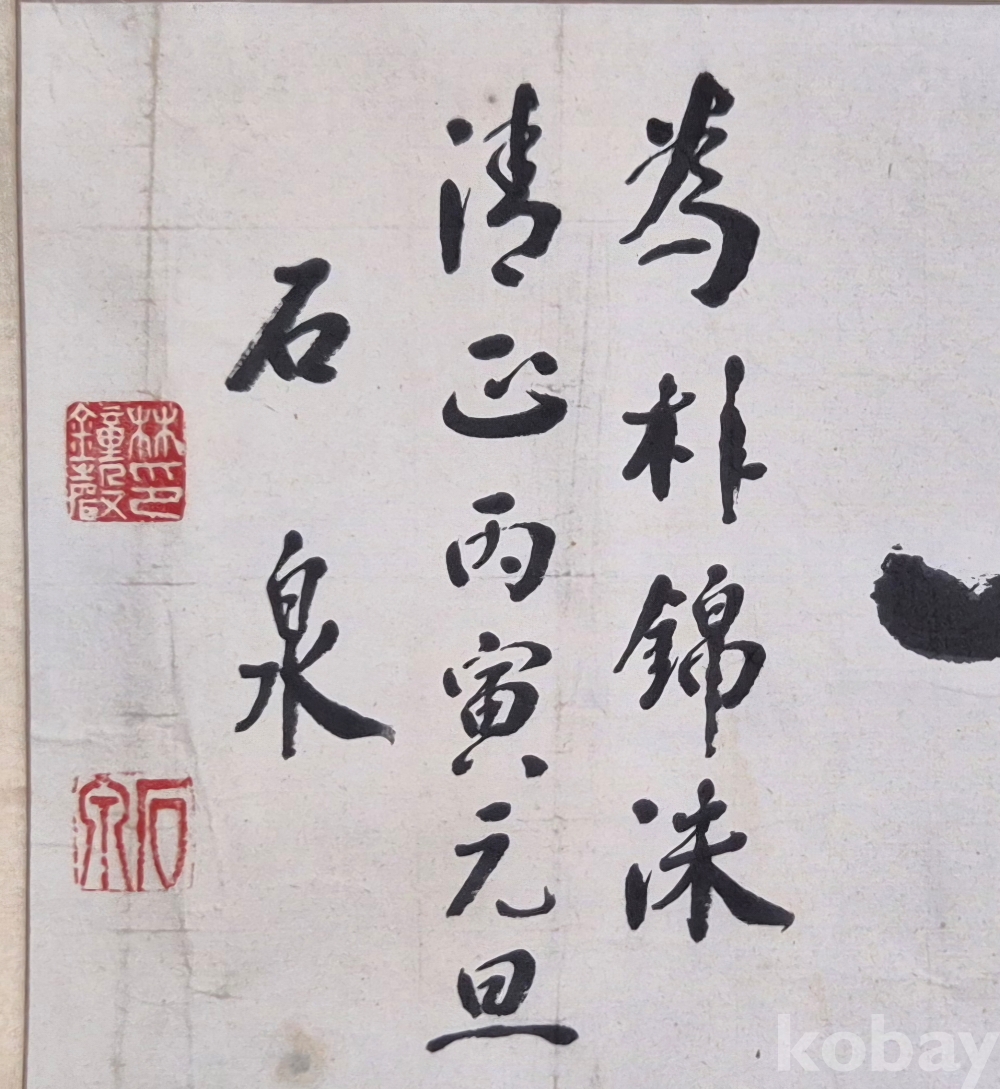 為朴錦洙
清正丙寅元旦
石泉
林鐘㲄印
石泉
kobay